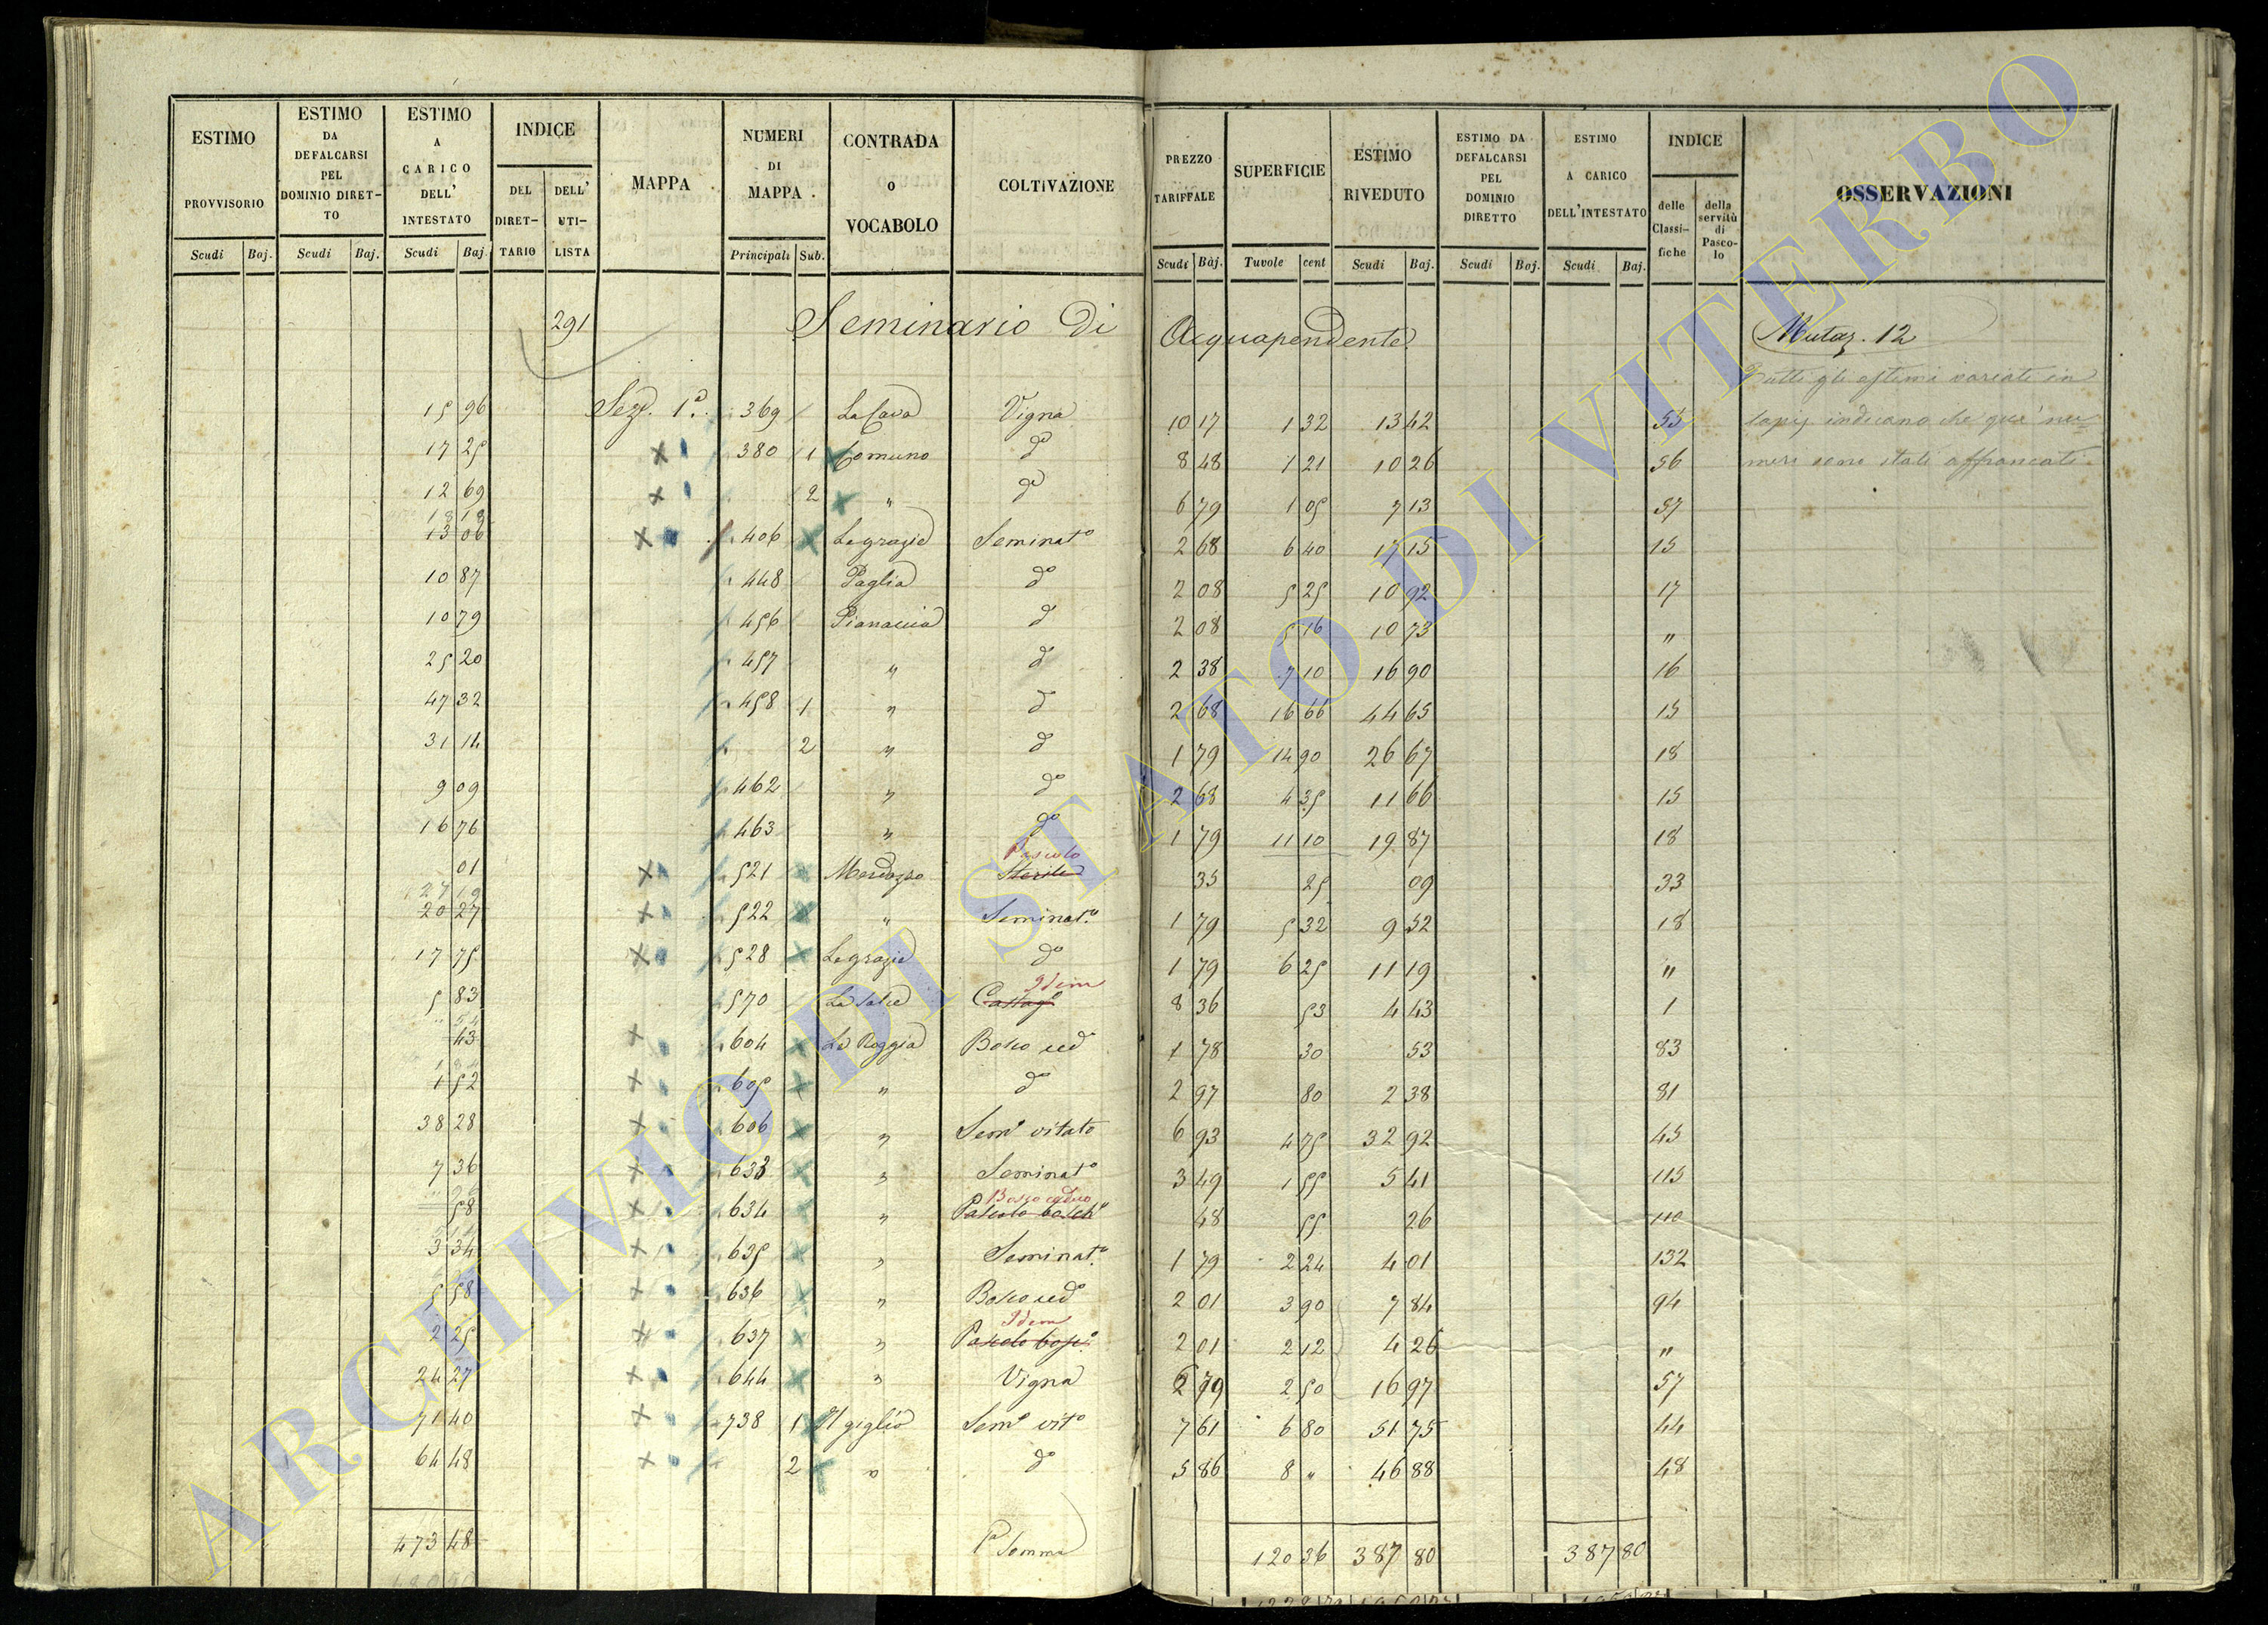 ESTIMO PROVVISORIO | ESTIMO DA DEFALCARSI PEL DOMINIO DIRETTO | ESTIMO A CARICO DELL' INTESTATO | INDICE DEL DIRETTARIO | DELL' UTILISTA | MAPPA | NUMERI DI MAPPA | CONTRADA O VOCABOLO | COLTIVAZIONE | PREZZO TARIFFALE | SUPERFICIE | ESTIMO RIVEDUTO | ESTIMO DA DEFALCARSI PEL DOMINIO DIRETTO | ESTIMO A CARICO DELL'INTESTATO | INDICE delle Classifiche | della servitù di Pascolo | OSSERVAZIONI
Scudi | Baj. | Scudi | Baj. | Scudi | Baj. | Principali | Sub. | Scudi | Baj. | Tavole | cent | Scudi | Baj. | Scudi | Baj. | Scudi | Baj.
291 Seminario Di Acquapendente Mutaz. 12
Tutti gli estimi variati in
15 96 Sez. 1ª 369 La Cava Vigna 10 17 1 32 13 42 55 lapis indicano che que' nu=
17 25 380 1 Comuno do 8 48 1 21 10 26 56 meri sono stati affrancati
12 69 2 " do 6 79 1 05 7 13 57
18 18
13 06 406 Le grazie Seminato 2 68 6 40 17 15 15
10 87 448 Paglia do 2 08 5 25 10 92 17
10 79 456 Pianaccia do 2 08 5 16 10 73 "
25 20 457 " do 2 38 7 10 16 90 16
47 32 458 1 " do 2 68 16 66 44 65 15
31 14 2 " do 1 79 14 90 26 67 18
9 09 462 " do 2 68 4 35 11 66 15
16 76 463 " do 1 79 11 10 19 87 18
Pascolo
01 521 Sterile 35 25 09 33
20 27 522 " Seminato 1 79 5 32 9 52 18
17 75 528 Le grazie do 1 79 6 25 11 19 "
Idem
5 83 570 8 36 53 4 43 1
43 604 La Roggia Bosco ced 1 78 30 53 83
1 52 605 " do 2 97 80 2 38 81
38 28 606 " Semo vitato 6 93 4 75 32 92 45
7 36 633 " Seminato 3 49 1 55 5 41 115
Bosco ceduo
58 634 " Pascolo boscho 48 55 26 110
3 34 635 " Seminato 1 79 2 24 4 01 132
5 58 636 " Bosco cedo 2 01 3 90 7 84 94
Idem
2 25 637 " Pascolo bosco 2 01 2 12 4 26 "
24 27 644 " Vigna 6 79 2 50 16 97 57
71 40 738 1 Il giglio Semo vito 7 61 6 80 51 75 44
64 48 2 " do 5 86 8 " 46 88 48
473 48 Pa Somma 120 36 387 80 387 80
ARCHIVIO DI STATO DI VITERBO